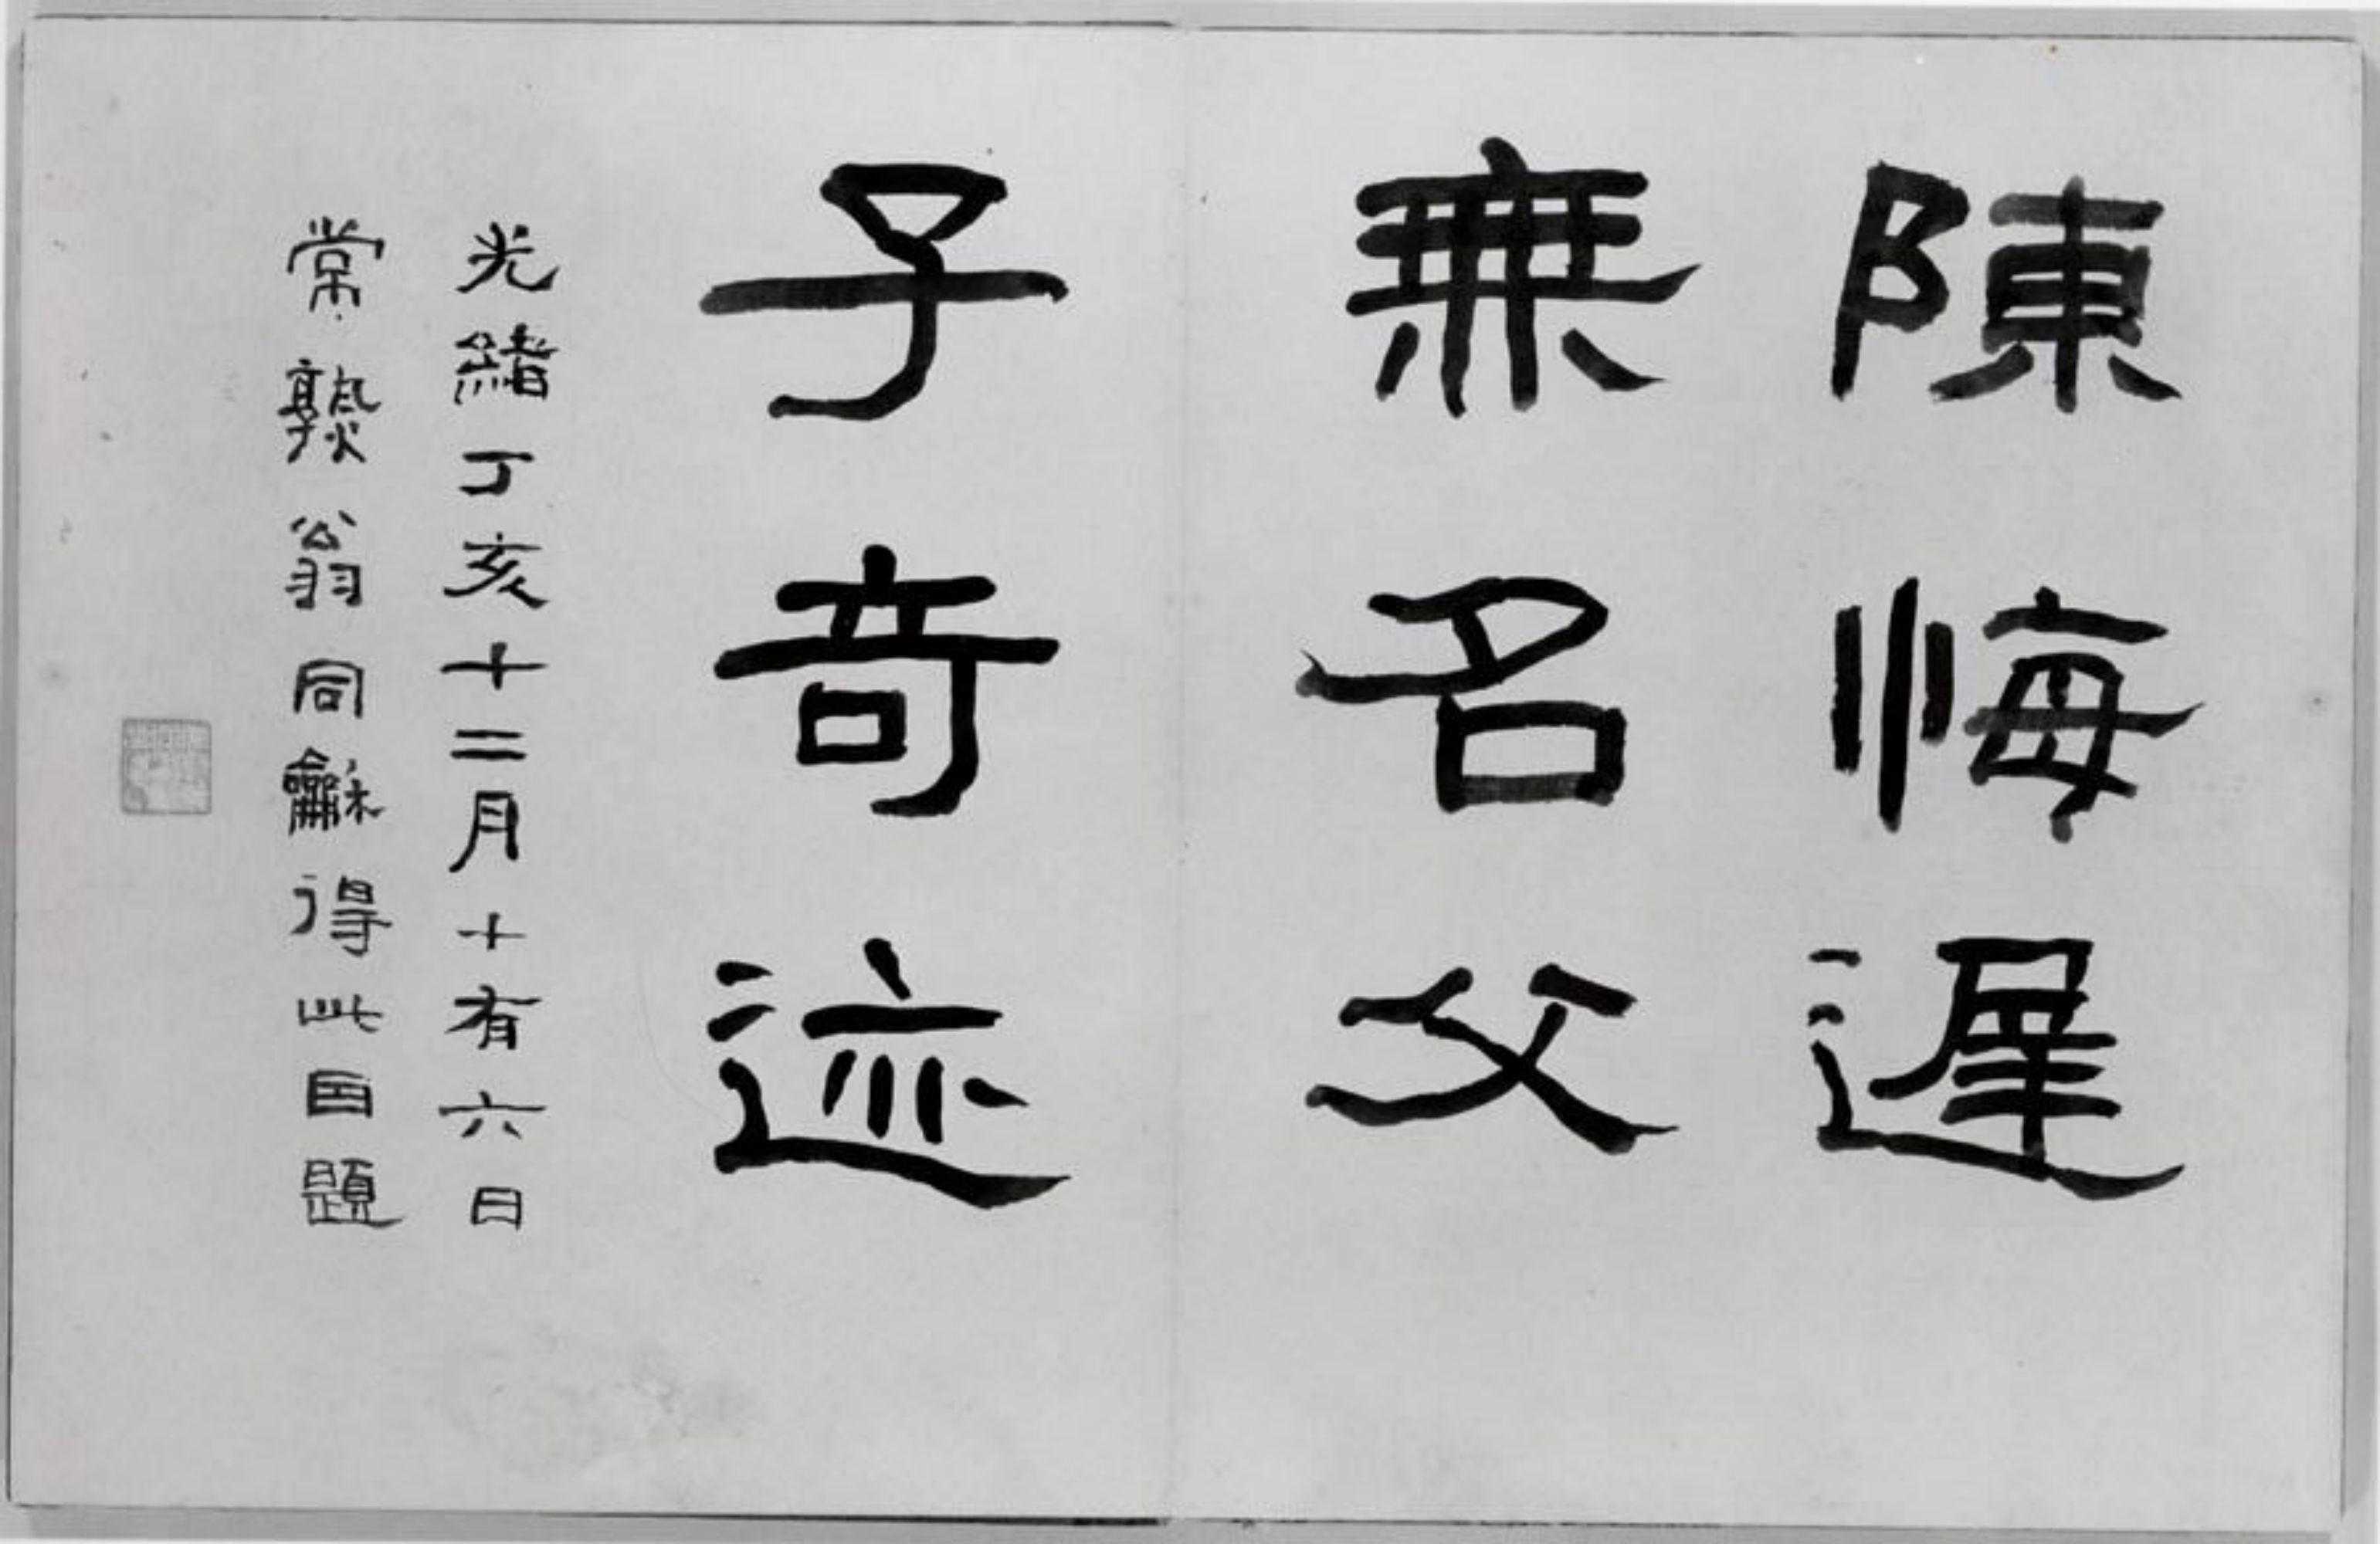 陳悔遲
無名父
子奇迹
光緒丁亥十二月十有六日
常熟翁同龢得此自題